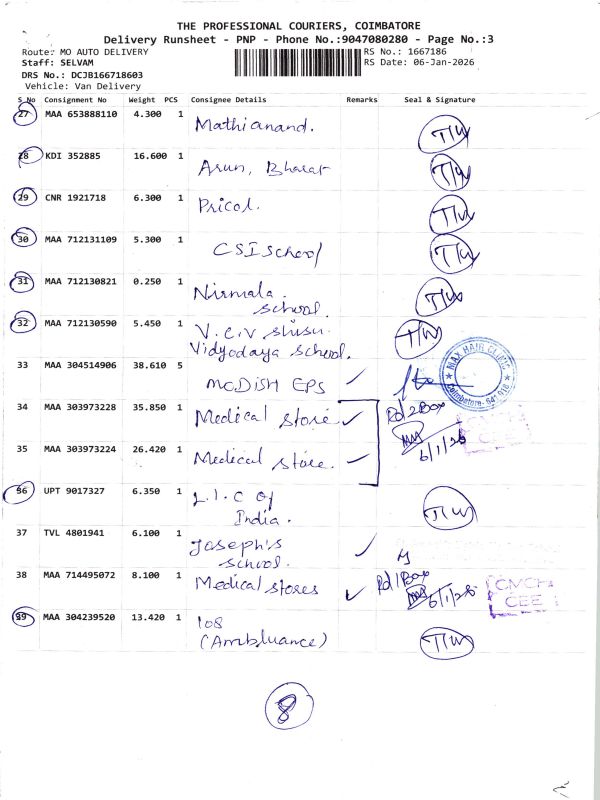 THE PROFESSIONAL COURIERS, COIMBATORE
Delivery Runsheet - PNP - Phone No.:9047080280 - Page No.:3
Route: MO AUTO DELIVERY
RS No.: 1667186
Staff: SELVAM
RS Date: 06-Jan-2026
DRS No.: DCJB166718603
Vehicle: Van Delivery
S No Consignment No Weight PCS Consignee Details Remarks Seal & Signature
27 MAA 653888110 4.300 1 Mathianand. T/W
28 KDI 352885 16.600 1 Arun, Bharat T/W
29 CNR 1921718 6.300 1 Pricol. T/W
30 MAA 712131109 5.300 1 CSI School T/W
31 MAA 712130821 0.250 1 Nirmala. T/W
school.
32 MAA 712130590 5.450 1 V.C.V shisu T/W
Vidyodaya school.
33 MAA 304514906 38.610 5 MODISH EPS ✓
MAX HAIR CLINIC
Coimbatore- 641 018
34 MAA 303973228 35.850 1 Medical store ✓ Rd/2Box
6/1/26
CMCH
CEE
35 MAA 303973224 26.420 1 Medical store. ✓
36 UPT 9017327 6.350 1 L.I.C of T/W
India.
37 TVL 4801941 6.100 1 Joseph's ✓
school.
38 MAA 714495072 8.100 1 Medical stores ✓ Rd/1Box
6/1/26
CMCH
CEE
39 MAA 304239520 13.420 1 108 T/W
(Ambluance)
8